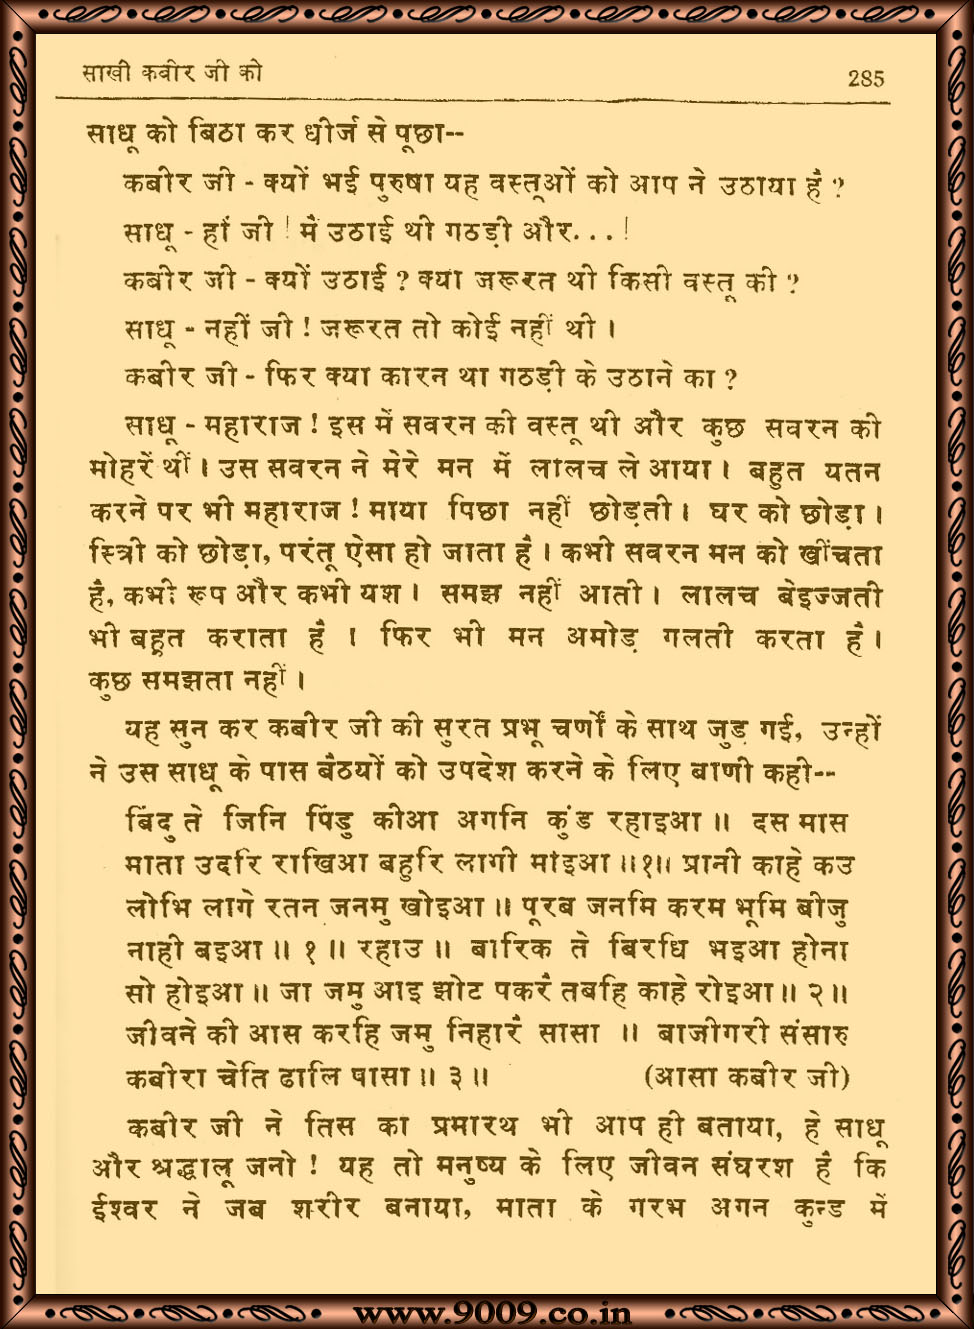 साखी कबीर जी की
285
साधू को बिठा कर धीर्ज से पूछा--
कबीर जी - क्यों भई पुरुषा यह वस्तूओं को आप ने उठाया है ?
साधू - हां जी ! मैं उठाई थी गठड़ी और. . . !
कबीर जी - क्यों उठाई ? क्या जरूरत थी किसी वस्तू की ?
साधू - नहीं जी ! जरूरत तो कोई नहीं थी ।
कबीर जी - फिर क्या कारन था गठड़ी के उठाने का ?
साधू - महाराज ! इस में सवरन की वस्तू थी और कुछ सवरन की
मोहरें थीं । उस सवरन ने मेरे मन में लालच ले आया । बहुत यतन
करने पर भी महाराज ! माया पिछा नहीं छोड़ती । घर को छोड़ा ।
स्त्रिी को छोड़ा, परंतू ऐसा हो जाता है । कभी सवरन मन को खींचता
है, कभी रूप और कभी यश । समझ नहीं आती । लालच बेइज्जती
भी बहुत कराता है । फिर भी मन अमोड़ गलती करता है ।
कुछ समझता नहीं ।
यह सुन कर कबीर जी की सुरत प्रभू चर्णों के साथ जुड़ गई, उन्हों
ने उस साधू के पास बैठयों को उपदेश करने के लिए बाणी कही--
बिंदु ते जिनि पिंडु कीआ अगनि कुंड रहाइआ ॥ दस मास
माता उदरि राखिआ बहुरि लागी माइआ ॥१॥ प्रानी काहे कउ
लोभि लागे रतन जनमु खोइआ ॥ पूरब जनमि करम भूमि बीजु
नाही बइआ ॥ १ ॥ रहाउ ॥ बारिक ते बिरधि भइआ होना
सो होइआ ॥ जा जमु आइ झोट पकरै तबहि काहे रोइआ ॥ २ ॥
जीवने की आस करहि जमु निहारै सासा ॥ बाजीगरी संसारु
कबीरा चेति ढालि पासा ॥ ३ ॥ (आसा कबीर जी)
कबीर जी ने तिस का प्रमारथ भी आप ही बताया, हे साधू
और श्रद्धालू जनो ! यह तो मनुष्य के लिए जीवन संघरश है कि
ईश्वर ने जब शरीर बनाया, माता के गरभ अगन कुन्ड में
www.9009.co.in